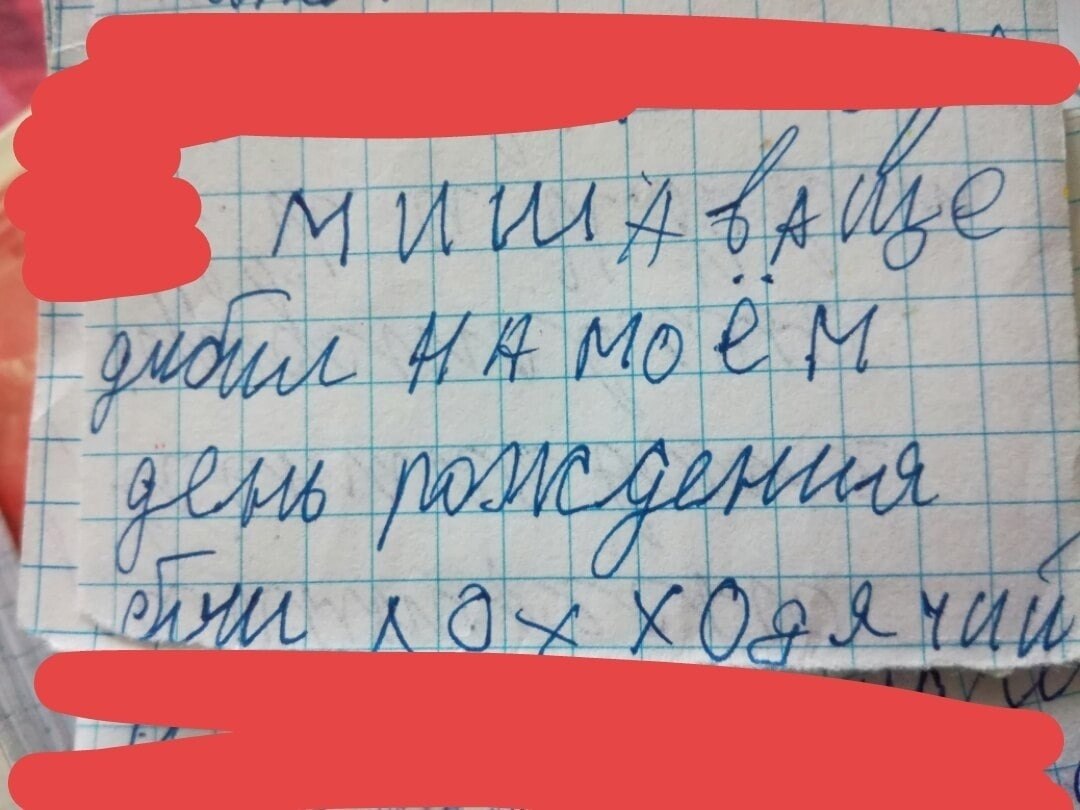 миша ваще
дибил на моём
день рождения
был лох ходячий